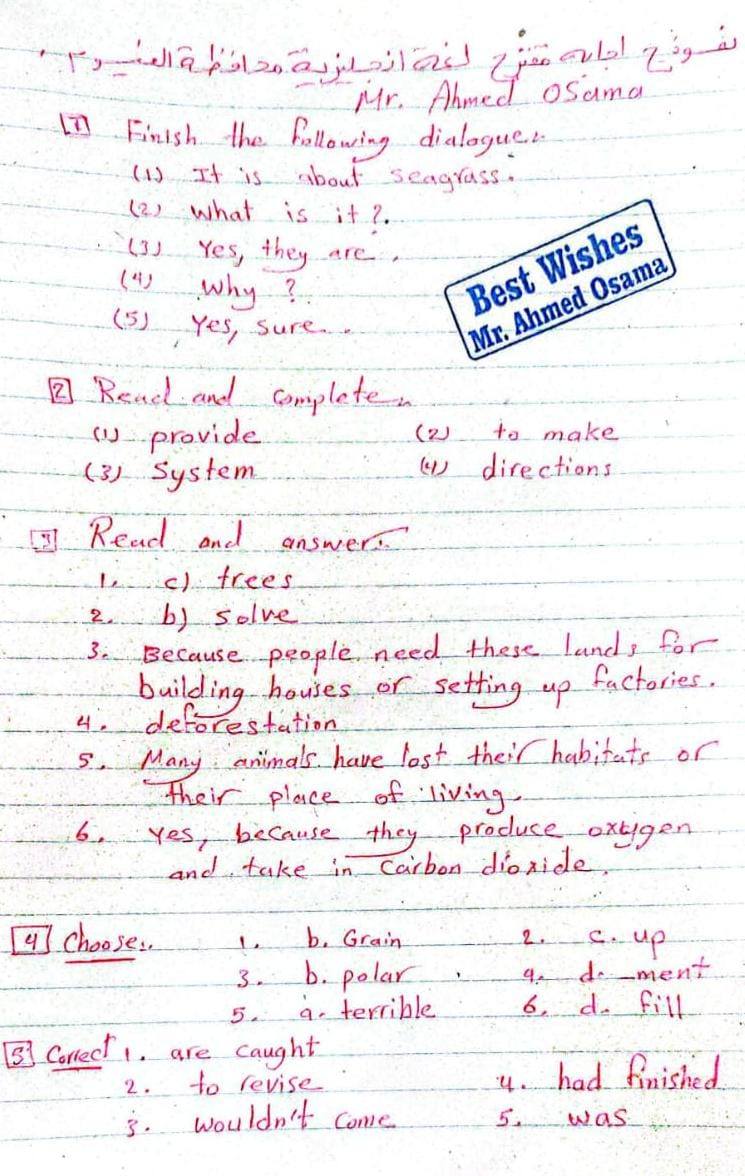 نموذج اجابه مقترح لغة انجليزية محافظة الفيوم
Mr. Ahmed Osama
1 Finish the following dialogue:-
(1) It is about seagrass.
(2) What is it?.
(3) Yes, they are.
(4) Why ?
(5) Yes, sure..
Best Wishes
Mr. Ahmed Osama
2 Read and complete:-
(1) provide (2) to make
(3) System (4) directions
3 Read and answer:-
1. c) trees
2. b) solve
3. Because people need these lands for
building houses or setting up factories.
4. deforestation
5. Many animals have lost their habitats or
their place of living.
6. Yes, because they produce oxygen
and take in Carbon dioxide.
4 Choose:. 1. b. Grain 2. c. up
3. b. polar 4. d. -ment
5. a. terrible 6. d. fill
5 Correct 1. are caught
2. to revise 4. had finished
3. wouldn't come 5. was